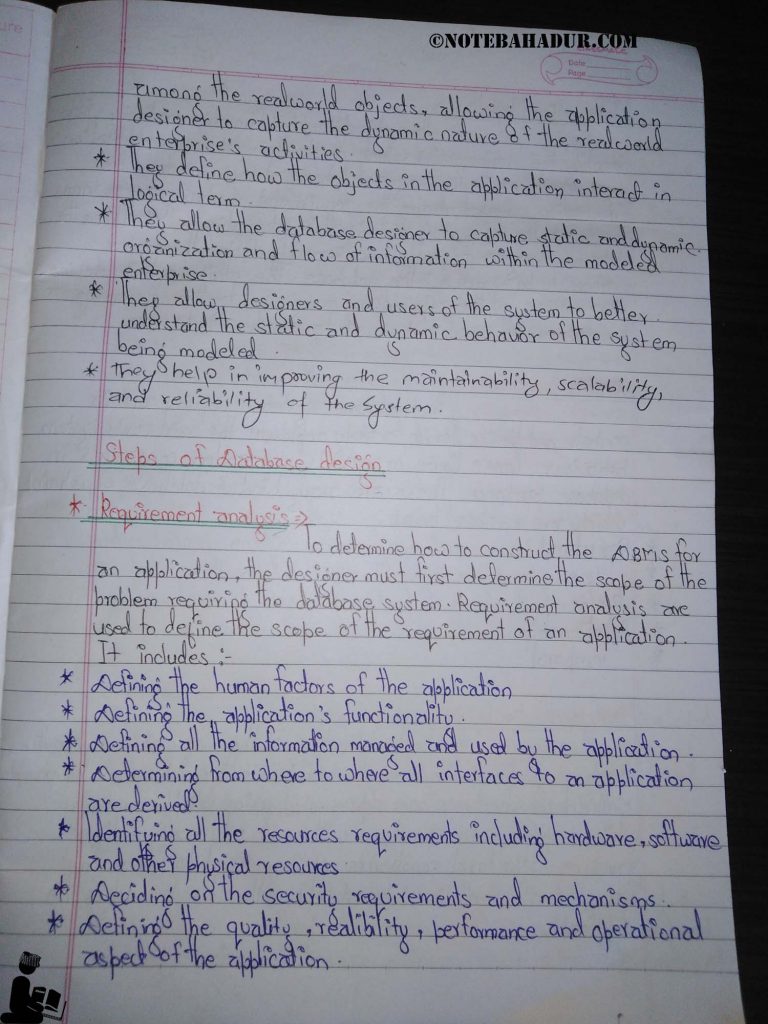 ©NOTEBAHADUR.COM
Date
Page
among the realworld objects, allowing the application
designer to capture the dynamic nature of the realworld
enterprise's activities.
* They define how the objects in the application interact in
logical term.
* They allow the database designer to capture static and dynamic
organization and flow of information within the modeled
enterprise.
* They allow designers and users of the system to better
understand the static and dynamic behavior of the system
being modeled.
* They help in improving the maintainability, scalability,
and reliability of the system.
Steps of Database design
* Requirement analysis ⇒
To determine how to construct the DBMS for
an application, the designer must first determine the scope of the
problem requiring the database system. Requirement analysis are
used to define the scope of the requirement of an application.
It includes :-
* Defining the human factors of the application
* Defining the application's functionality.
* Defining all the information managed and used by the application.
* Determining from where to where all interfaces to an application
are derived.
* Identifying all the resources requirements including hardware, software
and other physical resources
* Deciding on the security requirements and mechanisms.
* Defining the quality, realibility, performance and operational
aspect of the application.